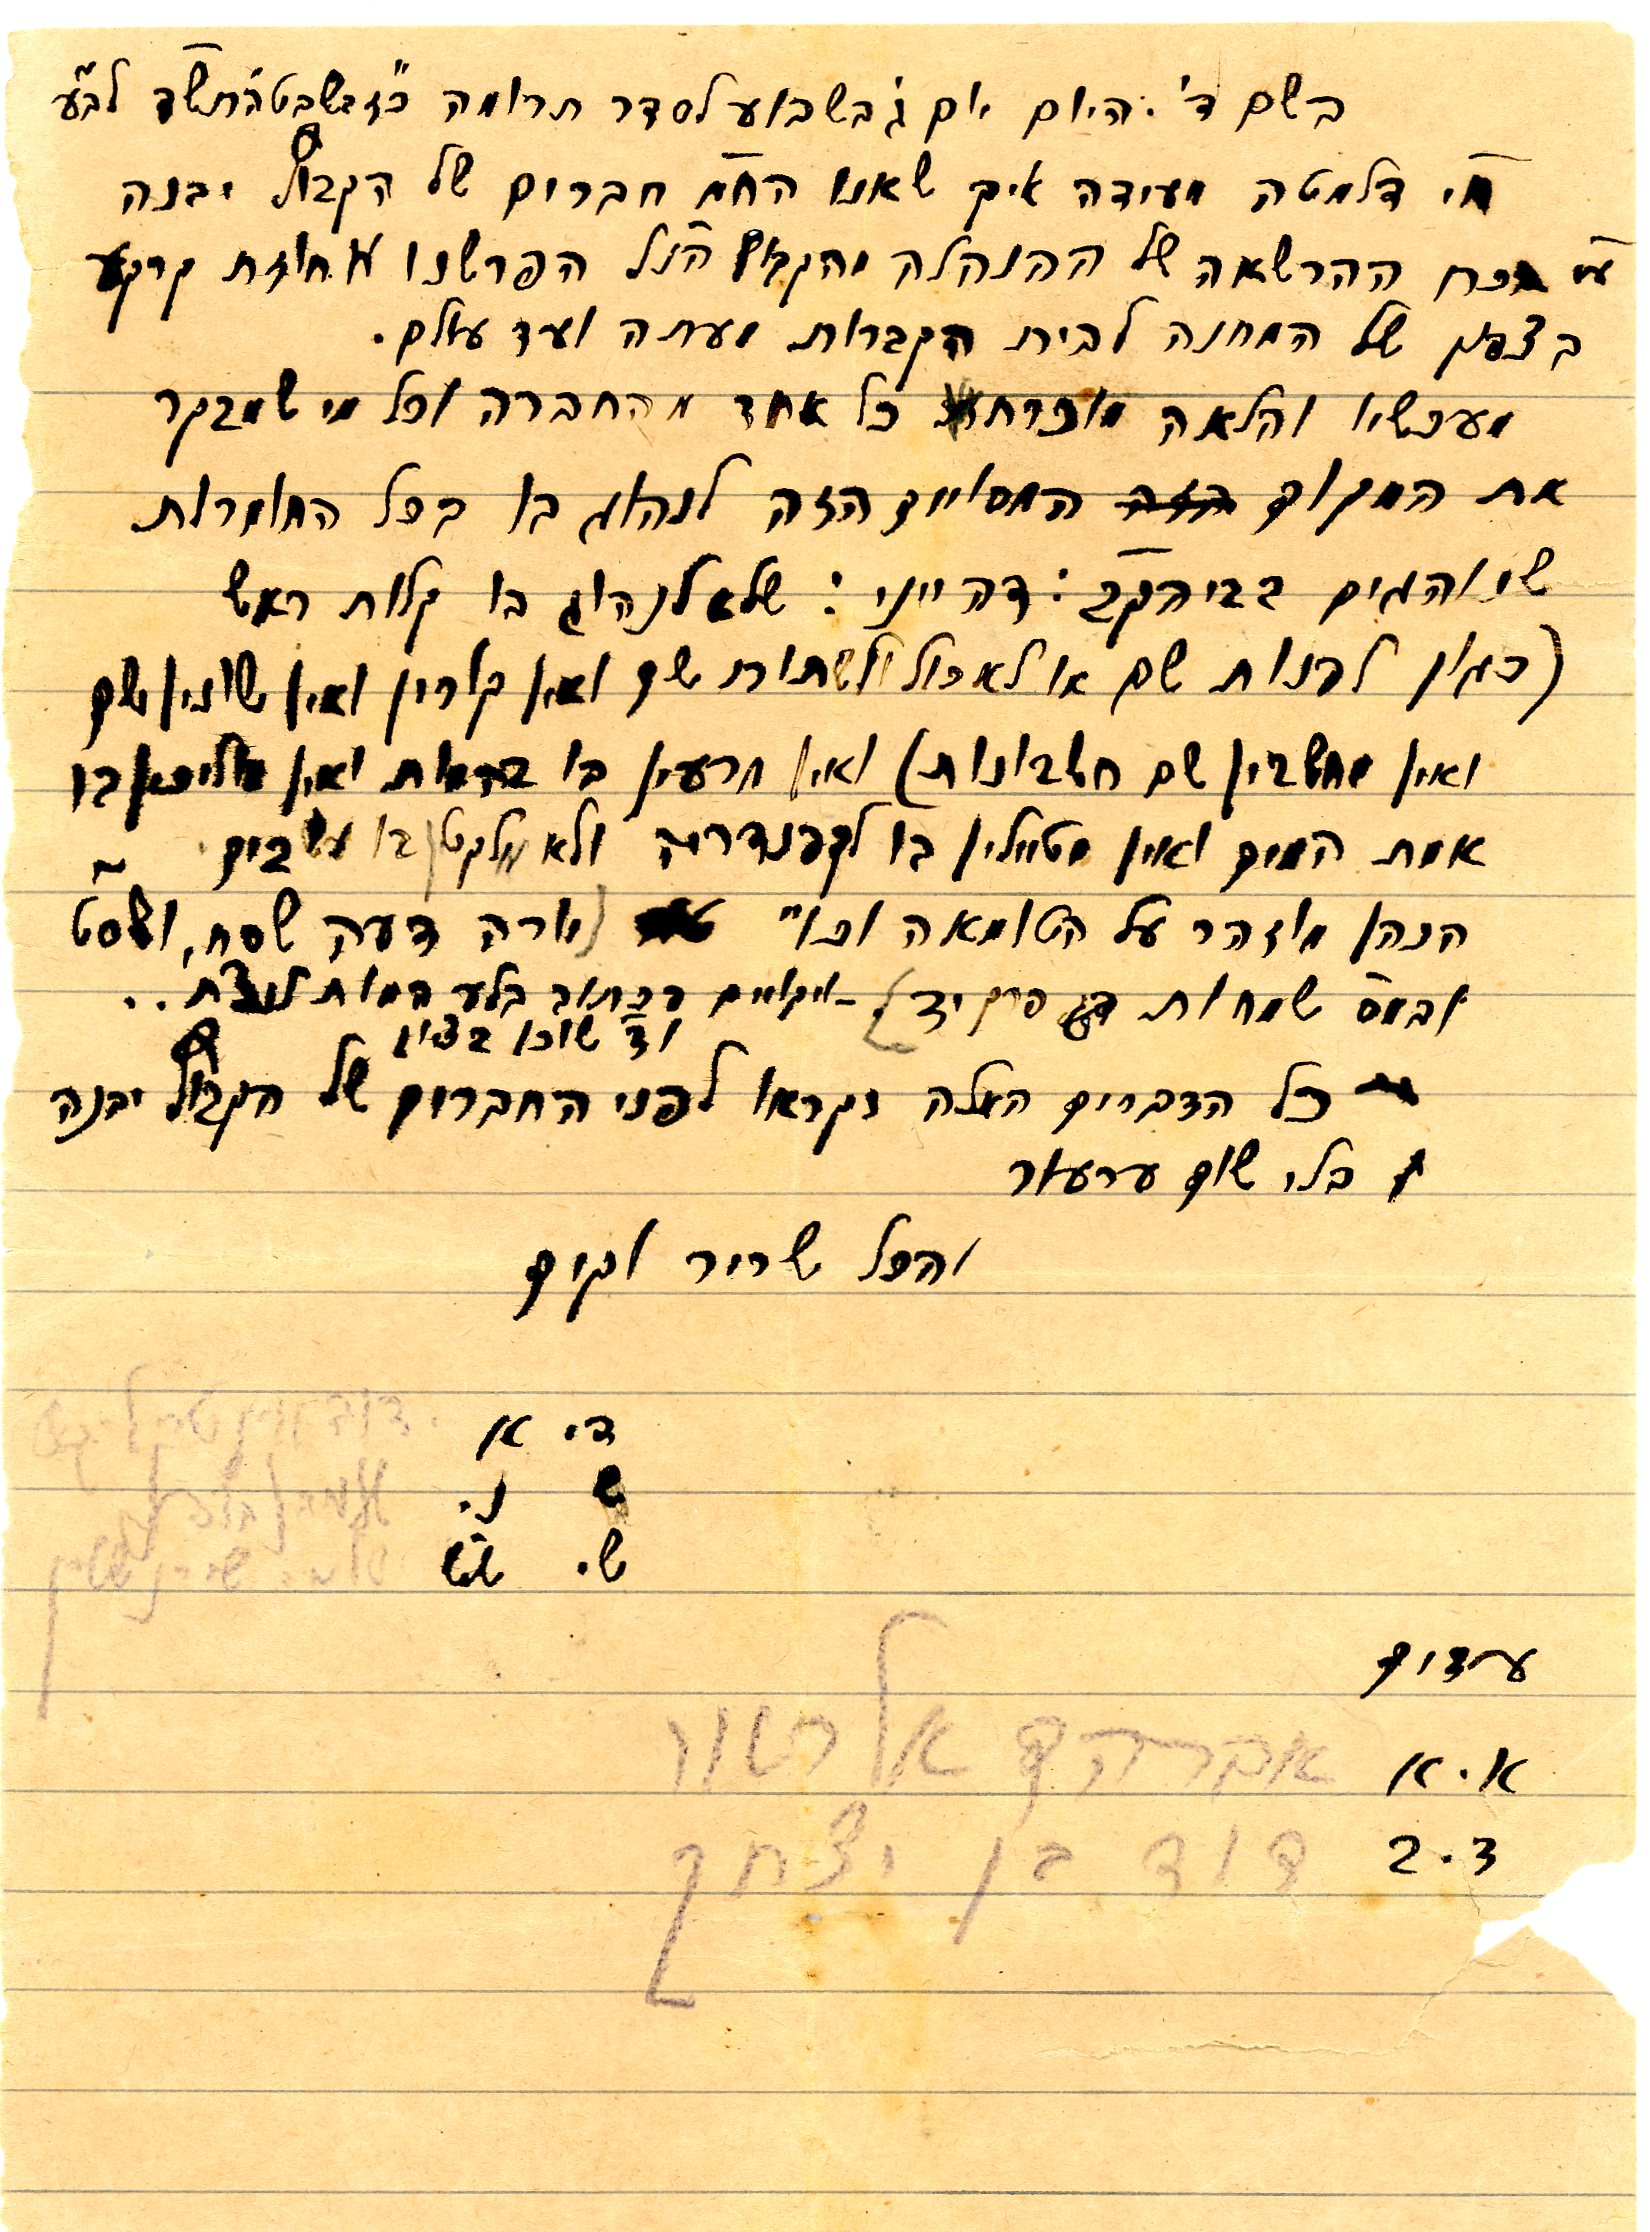 בשם ד'. היום יום ג' בשבוע לסדר תרומה כ"ז בשבט ה'תש"ד לבע
ח"י דלמטה מעידה איך שאנו הח"מ חברים של הקבוץ יבנה
ע"י ההרשאה של ההנהלה מהקבוץ הנ"ל הפרשנו אחוזת קרקע
בצפון של המחנה לבית הקברות מעתה ועד עולם.
מעכשיו והלאה כל אחד מהחברה וכל מי שמבקר
את המקום הזה המסויים הזה לנהוג בו בכל החומרות
שנוהגים בביהקב: דהייני: שלא לנהוג בו קלות ראש
(כגון לפנות שם או לאכול ולשתות שם ואין קורין ואין שונין שם
ואין מחשבין שם חשבונות) ואין מרעין בו בהמות ואין מוליכין בו
אמת המים ואין מטיילין בו לקפנדריה ולא מלקטין בו עשבים.
הכהן מוזהר על הטומאה וכו" [יורה דעה שסח, ושסט
ובמס שמחות פרק יד] – ויקויים הכתוב בלע המות לנצח..
וד' שוכן בציון
כל הדברים העלה נקראו לפני החברים של הקבוץ יבנה
בלי שום ערעור
והכל שריר וקים
די. א
ש נ.
שי. שש
עדים
א. א אברהם אלרטור
ד. ב דוד בן יצחק